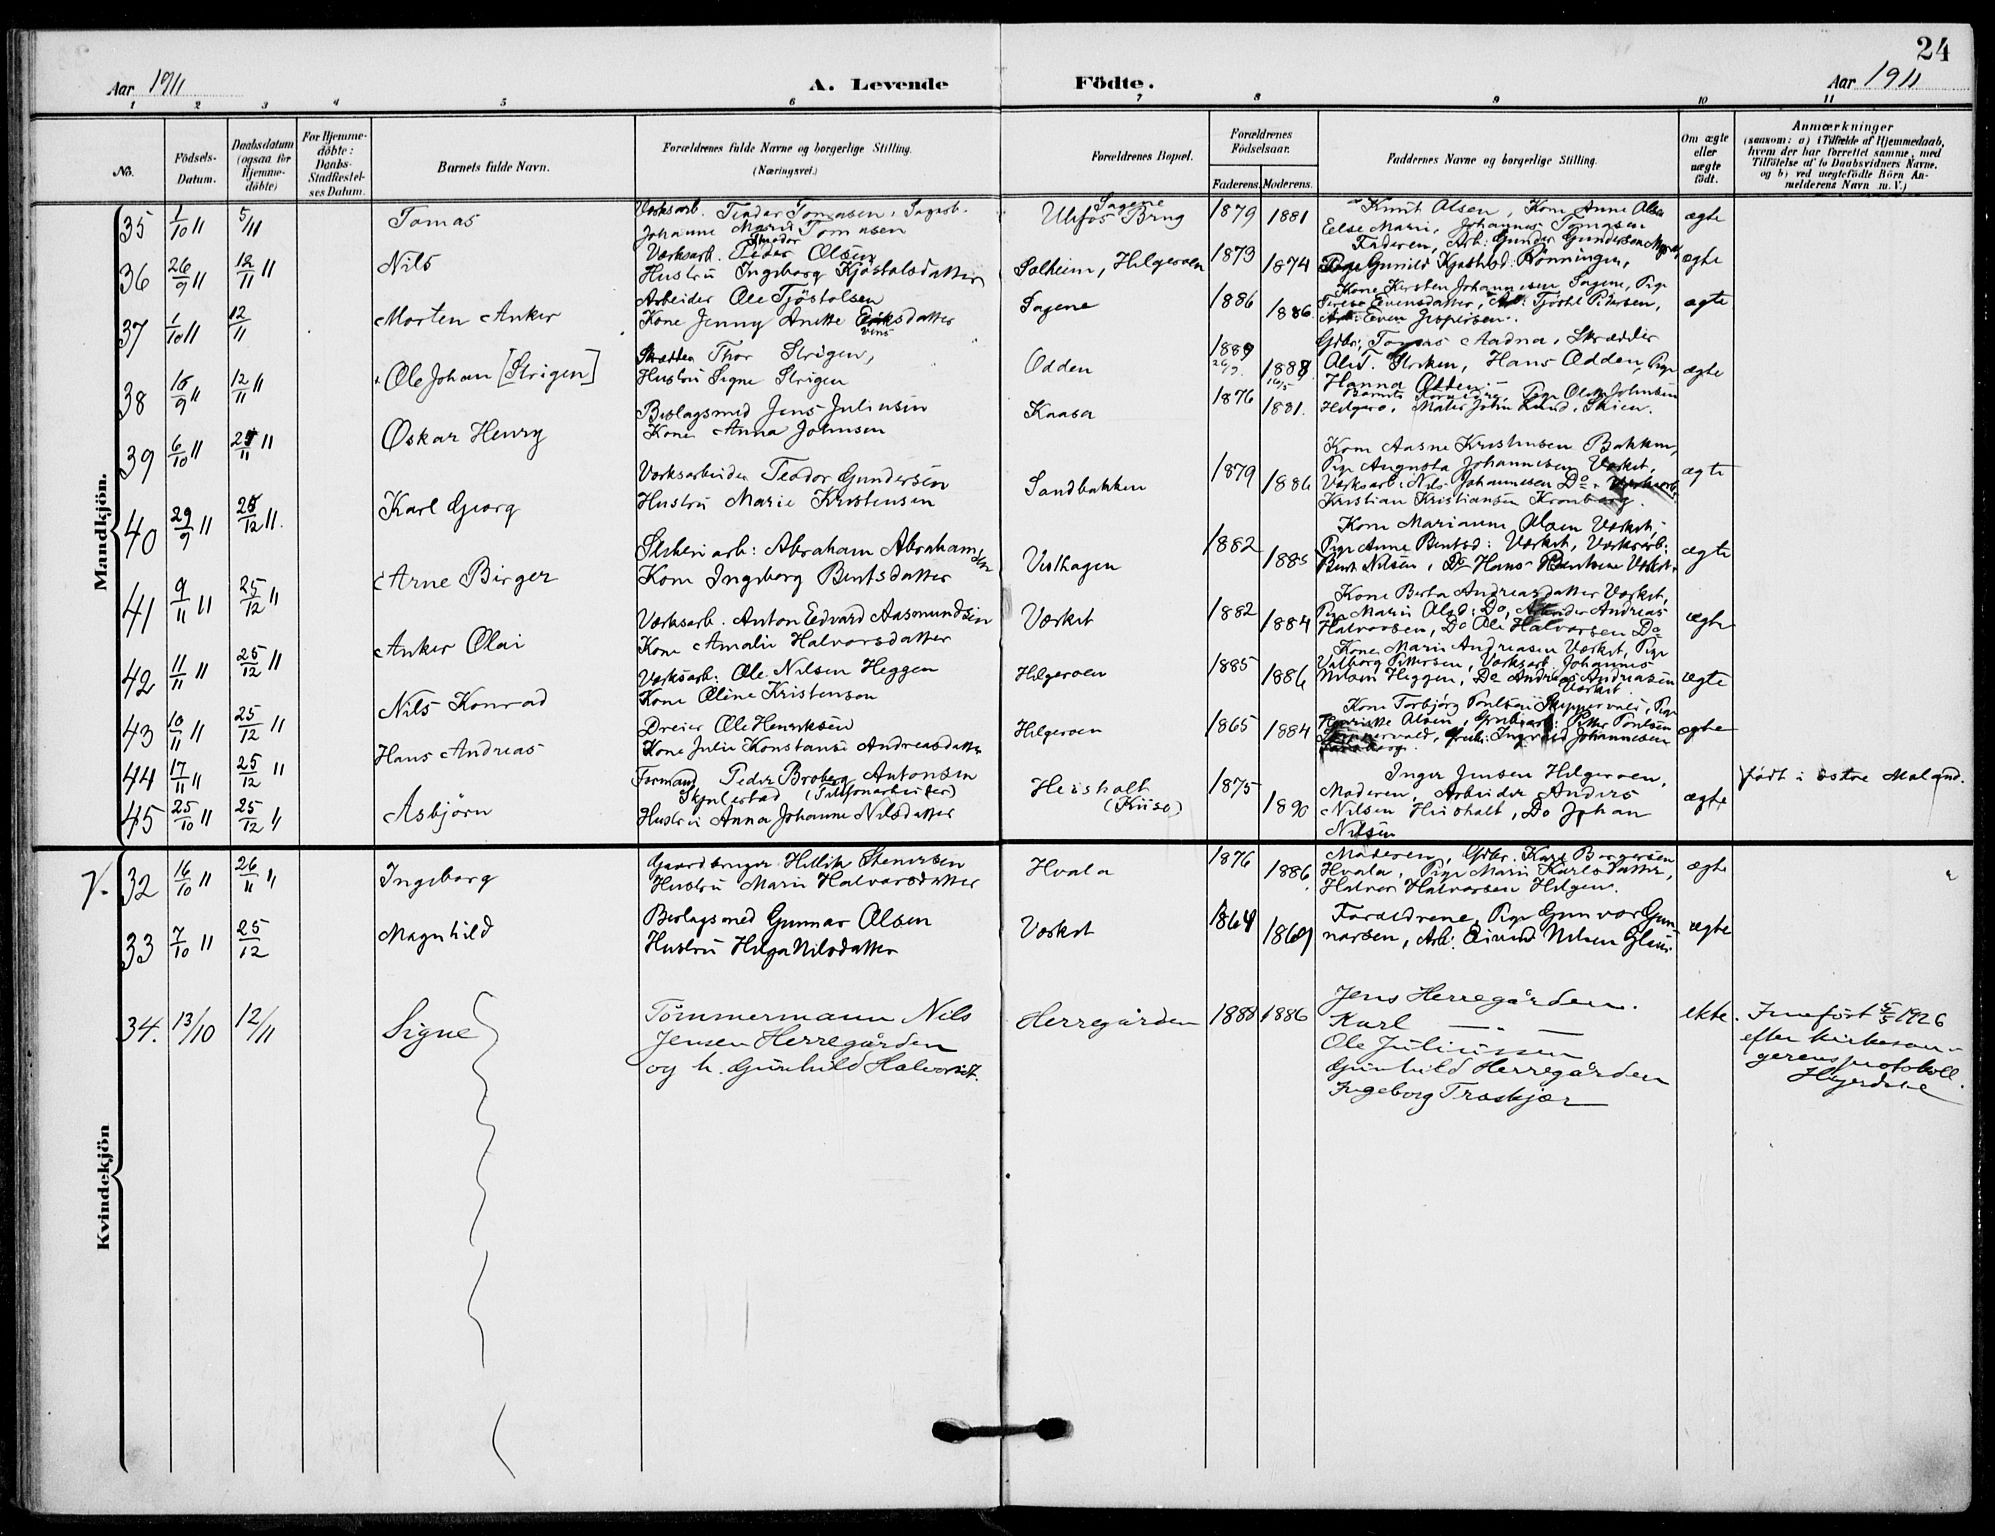 24
Aar 1911 A. Levende Födte. Aar 1911
1 2 3 4 5 6 7 8 9 10 11
No.
Födsels-
Datum.
Daabsdatum
(ogsaa for
Hjemme-
döbte)
For Hjemme-
döbte:
Daabs-
Stadfæstel-
ses Datum.
Barnets fulde Navn.
Forældrenes fulde Navne og borgerlige Stilling.
(Næringsvei.)
Forældrenes Bopæl.
Forældrenes
Födselsaar.
Faderens. Moderens.
Faddernes Navne og borgerlige Stilling.
Om ægte
eller
uægte
født.
Anmærkninger
(saasom: a) i Tilfælde af Hjemmedaab,
hvem der har forrettet samme, med
Tilföielse af to Daabsvidners Navne.
og b) ved uægtefödte Börn An-
melderens Navn m. V.)
Mandkjön.
35 1/10 11 5/11 Tomas
Værksarb. Teodor Tomasen, Sagarb.
Johanne Marie Tomasen
Sagene
Ulefos Brug 1879 1881
Knut Olsen, Kone Anne Olsen
Else Marie, Johannes Tomasen
ægte
36 26/9 11 12/11 11 Nils
Værksarb. Peder Olsen
Hustru Ingeborg Kjøstolsdatter
Solheim, Hilgeroen 1873 1874
Faderen, Arb: Gunder Gundersen
Pige Gunild Kjøstolsd: Rønningen,
ægte
37 1/10 11 12/11 Morten Anker
Arbeider Ole Tjöstolsen
Kone Jenny Anette
Sagene 1886 1886
Kone Kirsten Johannesen Sagene, Pige
Evensdatter, Tjöstel Petersen,
Arb: Even Jespersen.
ægte
38 15/9 11 12/11 11 Ole Johan [Strigen]
Skrædder Thor Strigen,
Hustru Signe Strigen
Odden 1889 1888
Gdbr: Tomas Aadna, Skrædder
Ole T. Striken, Hans Odden, Pige
Hanna Odden.
ægte
39 6/10 11 25/11 11 Oskar Henry
Beslagsmed Jens Juliusen
Kone Anna Johnsen
Kaasa 1876 1881.
Barnets Forældre, Pige Olga Johnsen
Hilgero, Maler John Lund, Skien.
40 29/9 11 25/12 11. Karl Georg
Værksarbeider Teodor Gundersen
Hustru Marie Kristensen
Sandbakken 1879 1886
Kone Aasne Kristensen Bakken,
Pige Augusta Johannesen Værket,
Værksarb: Nils Johannesen Do,
Kristian Kristiansen Kronborg.
ægte
41 9/11 11 25/12 11 Arne Birger
Sliberiarb: Abraham Abrahamsen
Kone Ingeborg Bentsdatter
Vesthagen 1882 1885
Kone Marianne Olsen Værket,
Pige Anne Bentsd: Værket, Værksarb:
Bent Nilsen, Do Hans Bentsen Værket.
ægte
42 11/11 11 25/12 11 Anker Olai
Værksarb. Anton Edvard Aasmundsen
Kone Amalie Halvorsdatter
Værket 1882 1884
Kone Berta Andreasdatter Værket,
Pige Marie Olsd: Do, Arbeider Andreas
Halvorsen, Do Ole Halvorsen Do
ægte
43 10/11 11 25/12 11 Nils Konrad
Værksarb: Ole Nilsen Heggen
Kone Oline Kristenson
Hilgeroen 1885 1886
Kone Marie Andreasen Værket, Pige
Valborg Pettersen, Værksarb. Johannes
Nilsen Heggen, Do Andreas Andreasen
Værket
ægte
44 17/11 11 25/12 11 Hans Andreas
Dreier Ole Henriksen
Kone Julie Konstanse Andreasdatter
Hilgeroen 1865 1884
Kone Torbjörg Poulsen Skippervold, Pige
Henriette Olsen, Grubearb: Petter Poulsen
Skippervold, Ingvald Johannesen
ægte
45 25/10 11 25/12 11 Asbjörn
Formand Peder Broberg Antonsen
Skjulestad (Telefonarbeider)
Hustru Anna Johanne Nilsdatter
Heisholt
(Kiise) 1875 1890
Inger Jensen Hilgeroen,
Moderen, Arbeider Anders
Nilsen Heisholt, Do Johan
Nilsen
ægte
født i østre Moland.
Kvindekjön
32 16/10 11 26/11 11 Ingeborg
Gaardbruger Hellik Stenersen
Hustru Marie Halvorsdatter
Hvala 1876 1886
Moderen, Gdbr. Karl Borgersen
Hvala, Pige Marie Karlsdatter,
Halvor Halvorsen Helgen.
ægte
33 7/10 11 25/12 Magnhild
Beslagsmed Gunnar Olsen
Hustru Helga Nilsdatter
Værket 1864 1869
Forældrene, Pige Gunvor Gun-
narsen, Arb: Eivind Nilsen
ægte
34. 13/10 12/11 Signe
Tømmermann Nils
Jensen Herregården
og h. Gunhild Halvorsdt.
Herregården 1888 1886
Jens Herregården.
Karl — " —
Ole Juliussen
Gunhild Herregården
Ingeborg Traskjær
ekte.
Innført 5/5 1926
efter kirkesan-
gerens protokoll.